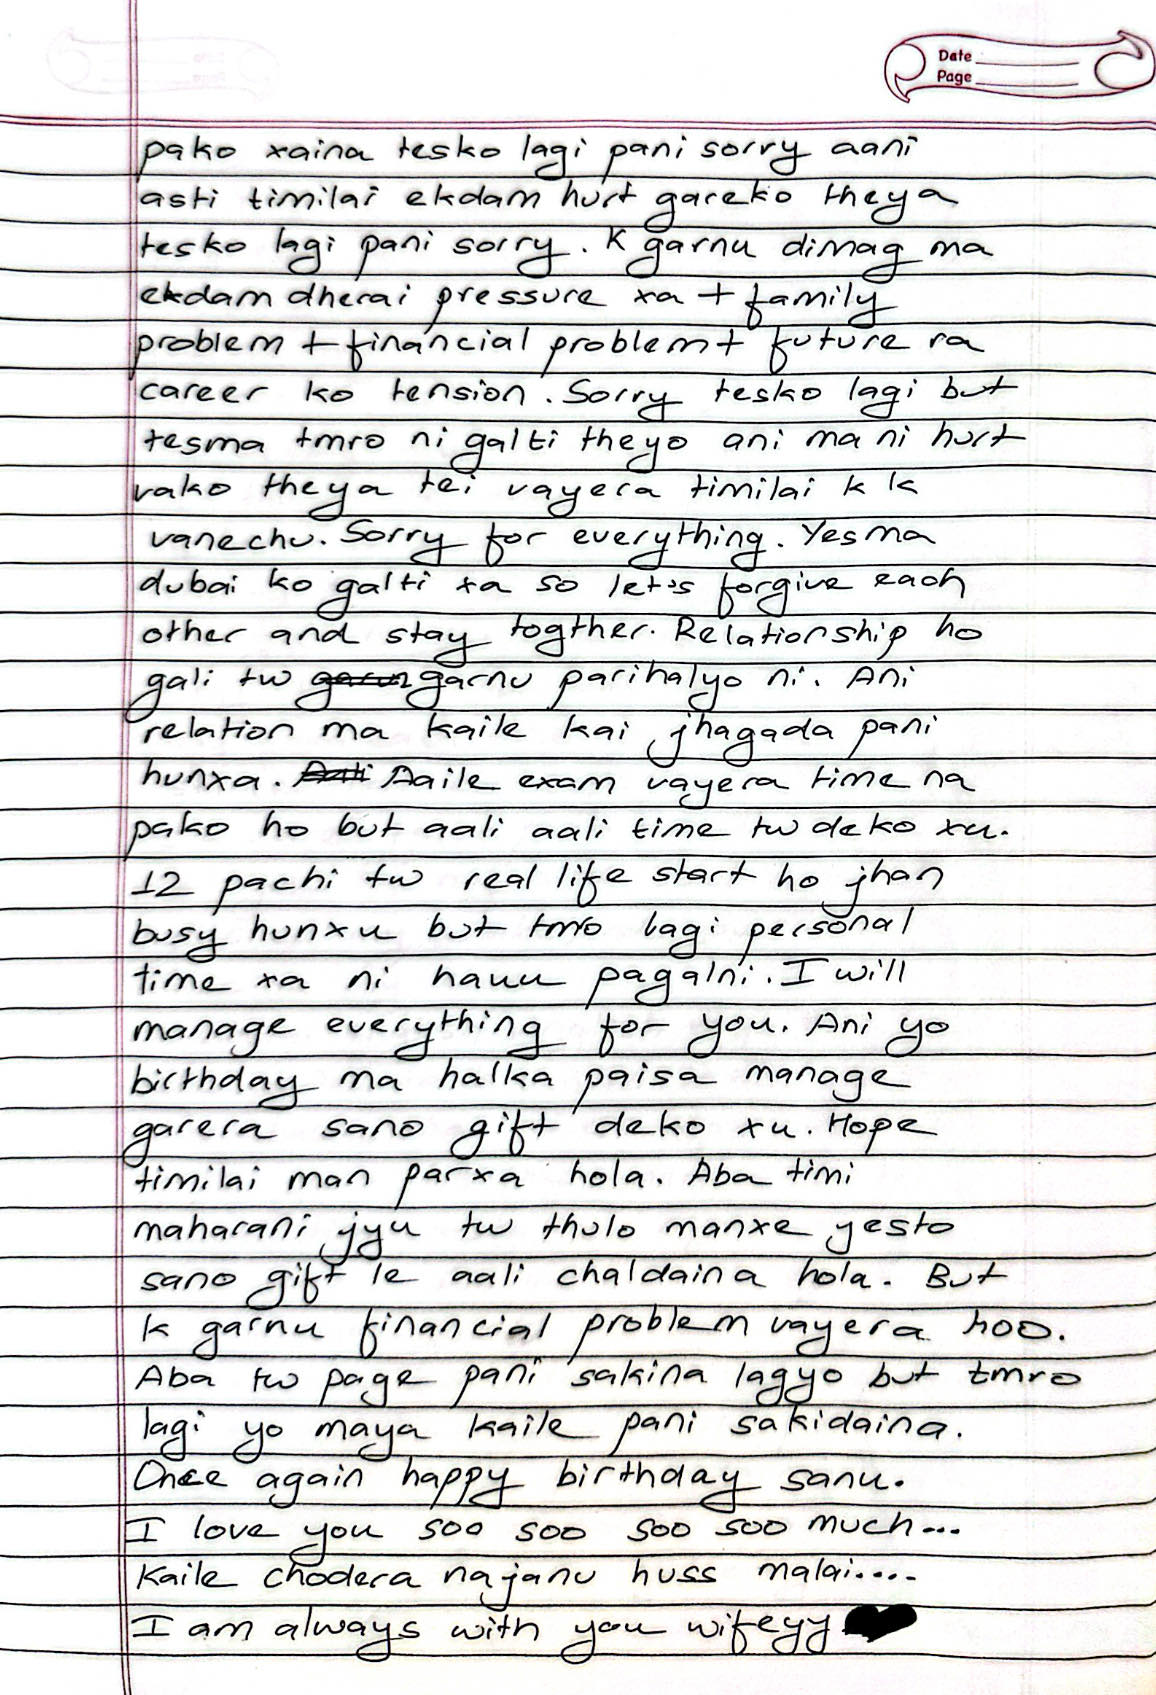 Date
Page
pako xaina tesko lagi pani sorry aani
asti timilai ekdam hurt gareko theya
tesko lagi pani sorry. K garnu dimag ma
ekdam dherai pressure xa + family
problem + financial problem + future ra
career ko tension. Sorry tesko lagi but
tesma tmro ni galti theyo ani ma ni hurt
vako theya tei vayera timilai k k
vanechu. Sorry for everything. Yesma
dubai ko galti xa so let's forgive each
other and stay togther. Relationship ho
gali tw garnu parihalyo ni. Ani
relation ma kaile kai jhagada pani
hunxa. Aaile exam vayera time na
pako ho but aali aali time tw deko xu.
12 pachi tw real life start ho jhan
busy hunxu but tmro lagi personal
time xa ni hauu pagalni. I will
manage everything for you. Ani yo
birthday ma halka paisa manage
garera sano gift deko xu. Hope
timilai man parxa hola. Aba timi
maharani jyu tw thulo manxe yesto
sano gift le aali chaldaina hola. But
k garnu financial problem vayera hoo.
Aba tw page pani sakina lagyo but tmro
lagi yo maya kaile pani sakidaina.
Once again happy birthday sanu.
I love you soo soo soo soo much...
Kaile chodera najanu huss malai....
I am always with you wifeyy